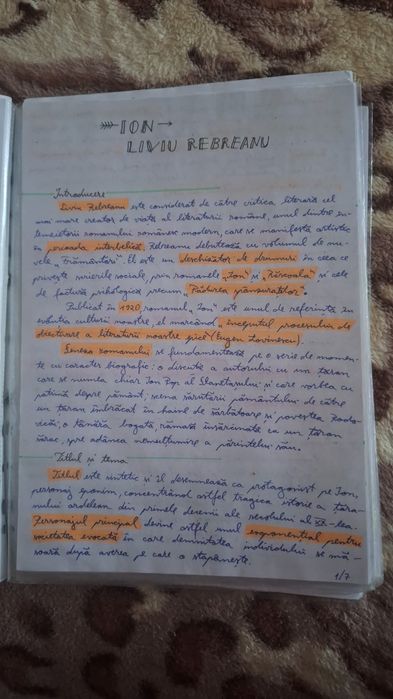 ION
LIVIU REBREANU
Introducere
Liviu Rebreanu este considerat de către critica literară cel
mai mare creator de viață al literaturii române, unul dintre în-
temeietorii romanului românesc modern, care se manifestă artistic
în perioada interbelică. Rebreanu debutează cu volumul de nu-
vele „Frământări". El este un deschizător de drumuri în ceea ce
privește scrierile sociale, prin romanele „Ion" și „Răscoala" și cele
de factură psihologică precum „Pădurea spânzuraților".
Publicat în 1920, romanul „Ion" este unul de referință în
evoluția culturii noastre, el marcând „începutul procesului de
obiectivare a literaturii noastre epice" (Eugen Lovinescu).
Geneza romanului se fundamentează pe o serie de momen-
te cu caracter biografic: o discuție a autorului cu un țăran
care se numea chiar Ion Pop al Glanetașului și care vorbea cu
patimă despre pământ, scena sărutării pământului de către
un țăran îmbrăcat în haine de sărbătoare și povestea Rodo-
vicăi, o tânără bogată, rămasă însărcinată cu un țăran
sărac, spre adânca nemulțumire a părintelui său.
Titlul și tema
Titlul este sintetic și îl desemnează ca protagonist pe Ion,
personaj eponim, concentrând astfel tragica istorie a țăra-
nului ardelean din primele decenii ale secolului al XX-lea.
Personajul principal devine astfel unul exponențial pentru
societatea evocată în care demnitatea individului se mă-
soară după averea pe care o stăpânește.
1/7